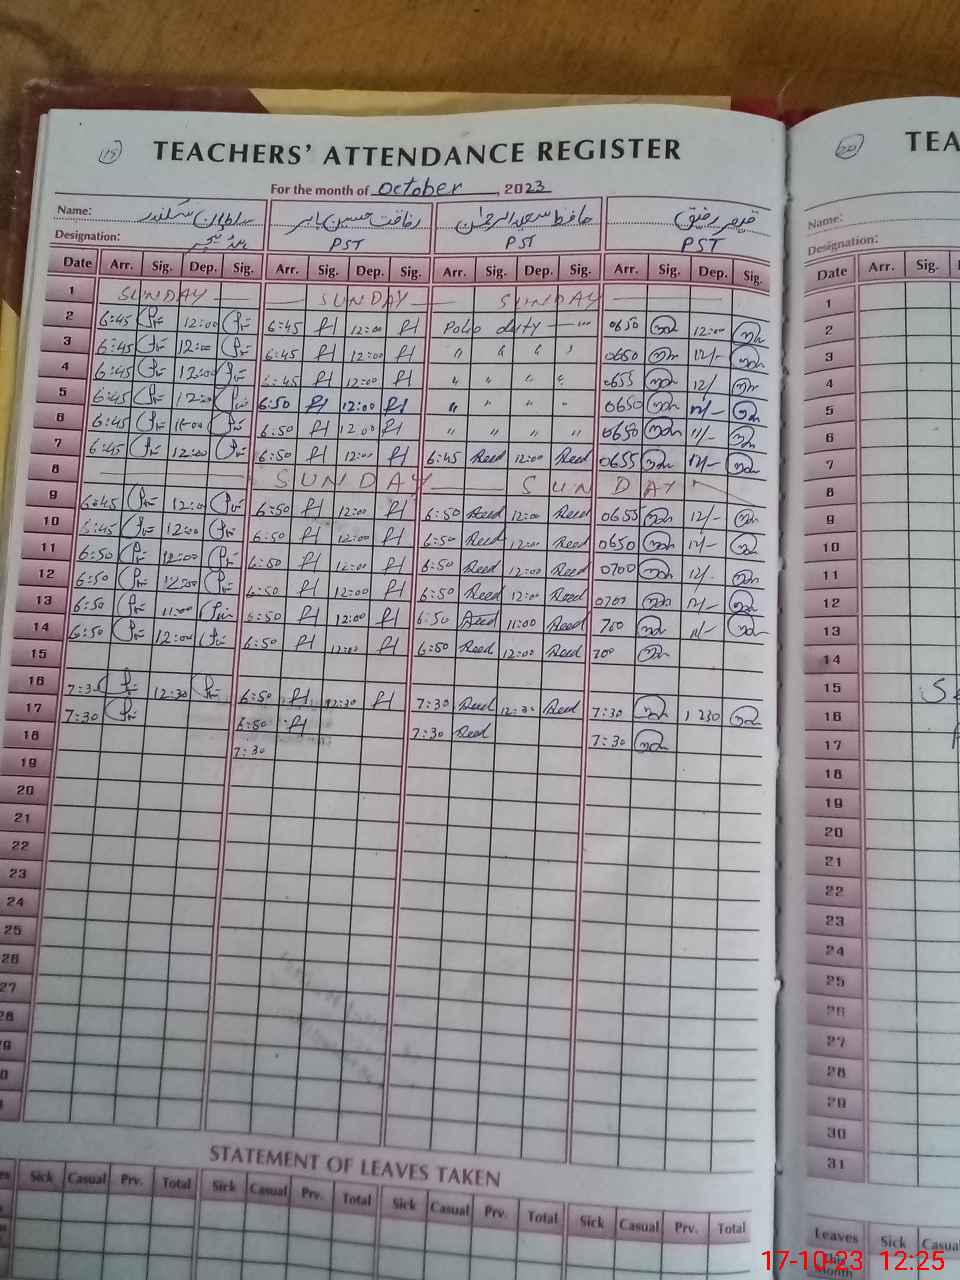 19 TEACHERS' ATTENDANCE REGISTER
For the month of October, 2023
Name: سلطان سکندر رفاقت حسین بابر حافظ سعید الرحمٰن قیصر رفیق
Designation: PST PST PST
Date Arr. Sig. Dep. Sig. Arr. Sig. Dep. Sig. Arr. Sig. Dep. Sig. Arr. Sig. Dep. Sig.
1 SUNDAY SUNDAY SUNDAY
2 6:45 12:00 6:45 12:00 Polio duty 0650 12:00
3 6:45 12:00 6:45 12:00 " " " " 0650 12/-
4 6:45 12:00 6:45 12:00 " " " " 0655 12/
5 6:45 12:00 6:50 12:00 " " " " 0650 12/-
6 6:45 11:00 6:50 12:00 " " " " 0650 11/-
7 6:45 12:00 6:50 12:00 6:45 12:00 0655 12/-
8 SUNDAY SUNDAY
9 6:45 12:00 6:50 12:00 6:50 12:00 0655 12/-
10 6:45 12:00 6:50 12:00 6:50 12:00 0650 12/-
11 6:50 12:00 6:50 12:00 6:50 12:00 0700 12/-
12 6:50 12:00 6:50 12:00 6:50 12:00 0700 12/-
13 6:50 11:00 6:50 12:00 6:50 11:00 700 11/-
14 6:50 12:00 6:50 12:00 6:50 12:00 700
15
16 7:30 12:30 6:50 12:30 7:30 12:30 7:30 1230
17 7:30 6:50 7:30 7:30
18 7:30
19
20
21
22
23
24
25
26
27
28
STATEMENT OF LEAVES TAKEN
Sick Casual Prv. Total Sick Casual Prv. Total Sick Casual Prv. Total Sick Casual Prv. Total
20 TEA
Name:
Designation:
Date Arr. Sig.
1
2
3
4
5
6
7
8
9
10
11
12
13
14
15
16
17
18
19
20
21
22
23
24
25
26
27
28
29
30
31
Leaves Sick Casual
This
Month
17-10-23 12:25